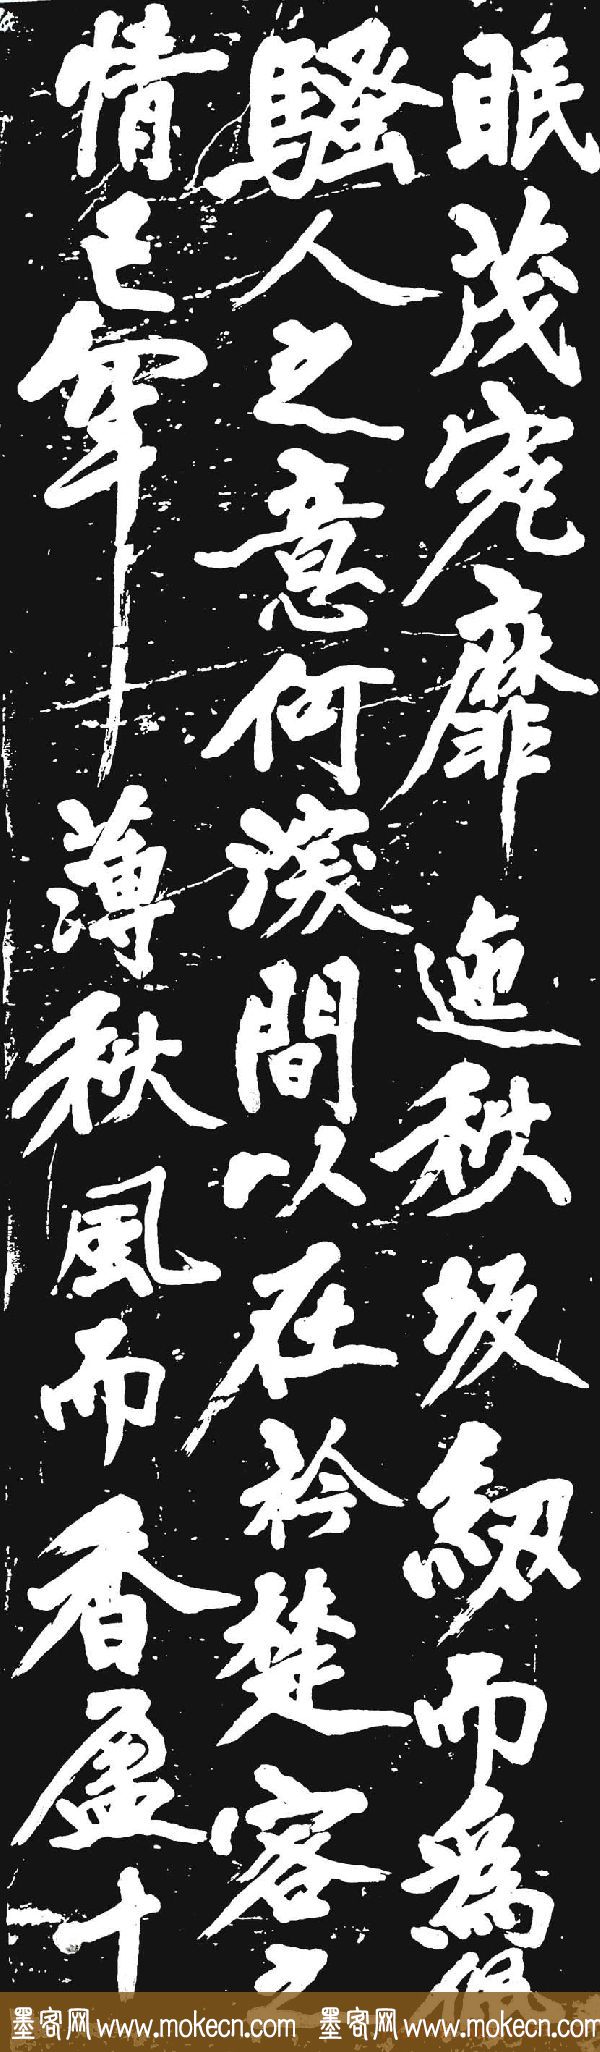 眠茂宛靡迤秋坂紉而為佩
騷人之意何深間以在衿楚客之
情已罕薄秋風而香盈十
墨客网 www.mokecn.com 墨客网 www.mokecn.com